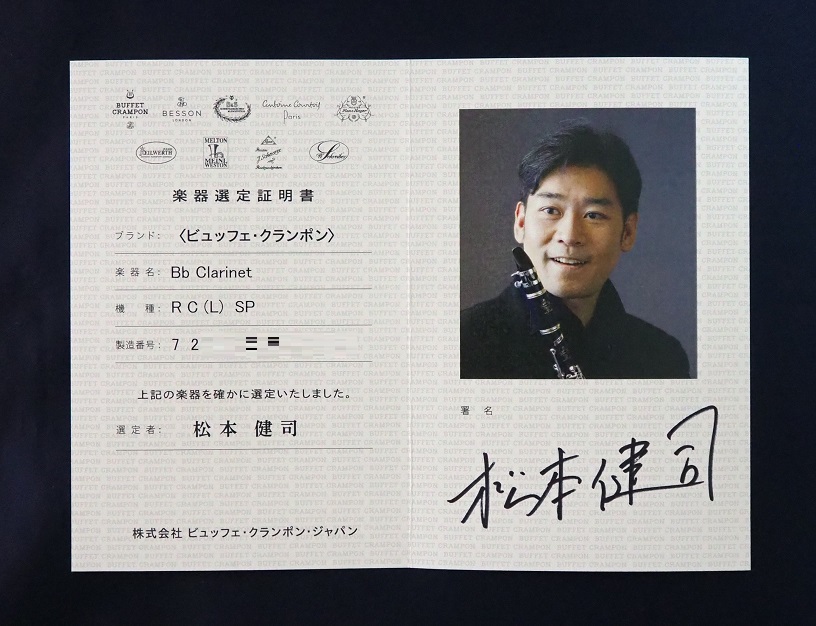 BUFFET CRAMPON
PARIS
BESSON
LONDON
B&S
Antoine Courtois
Paris
Hans Hoyer
KEILWERTH
MELTON
MEINL
WESTON
J. Scherzer
W. Schreiber
楽器選定証明書
ブランド： 〈ビュッフェ・クランポン〉
楽器名： Bb Clarinet
機　種： RC(L) SP
製造番号： 7 2
上記の楽器を確かに選定いたしました。
選定者： 松本 健司
株式会社 ビュッフェ・クランポン・ジャパン
署　名
松本健司